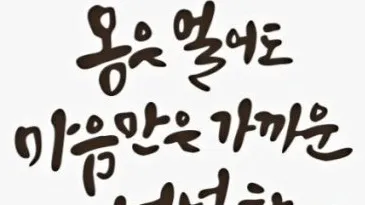 몸은 멀어도
마음만은 가까운